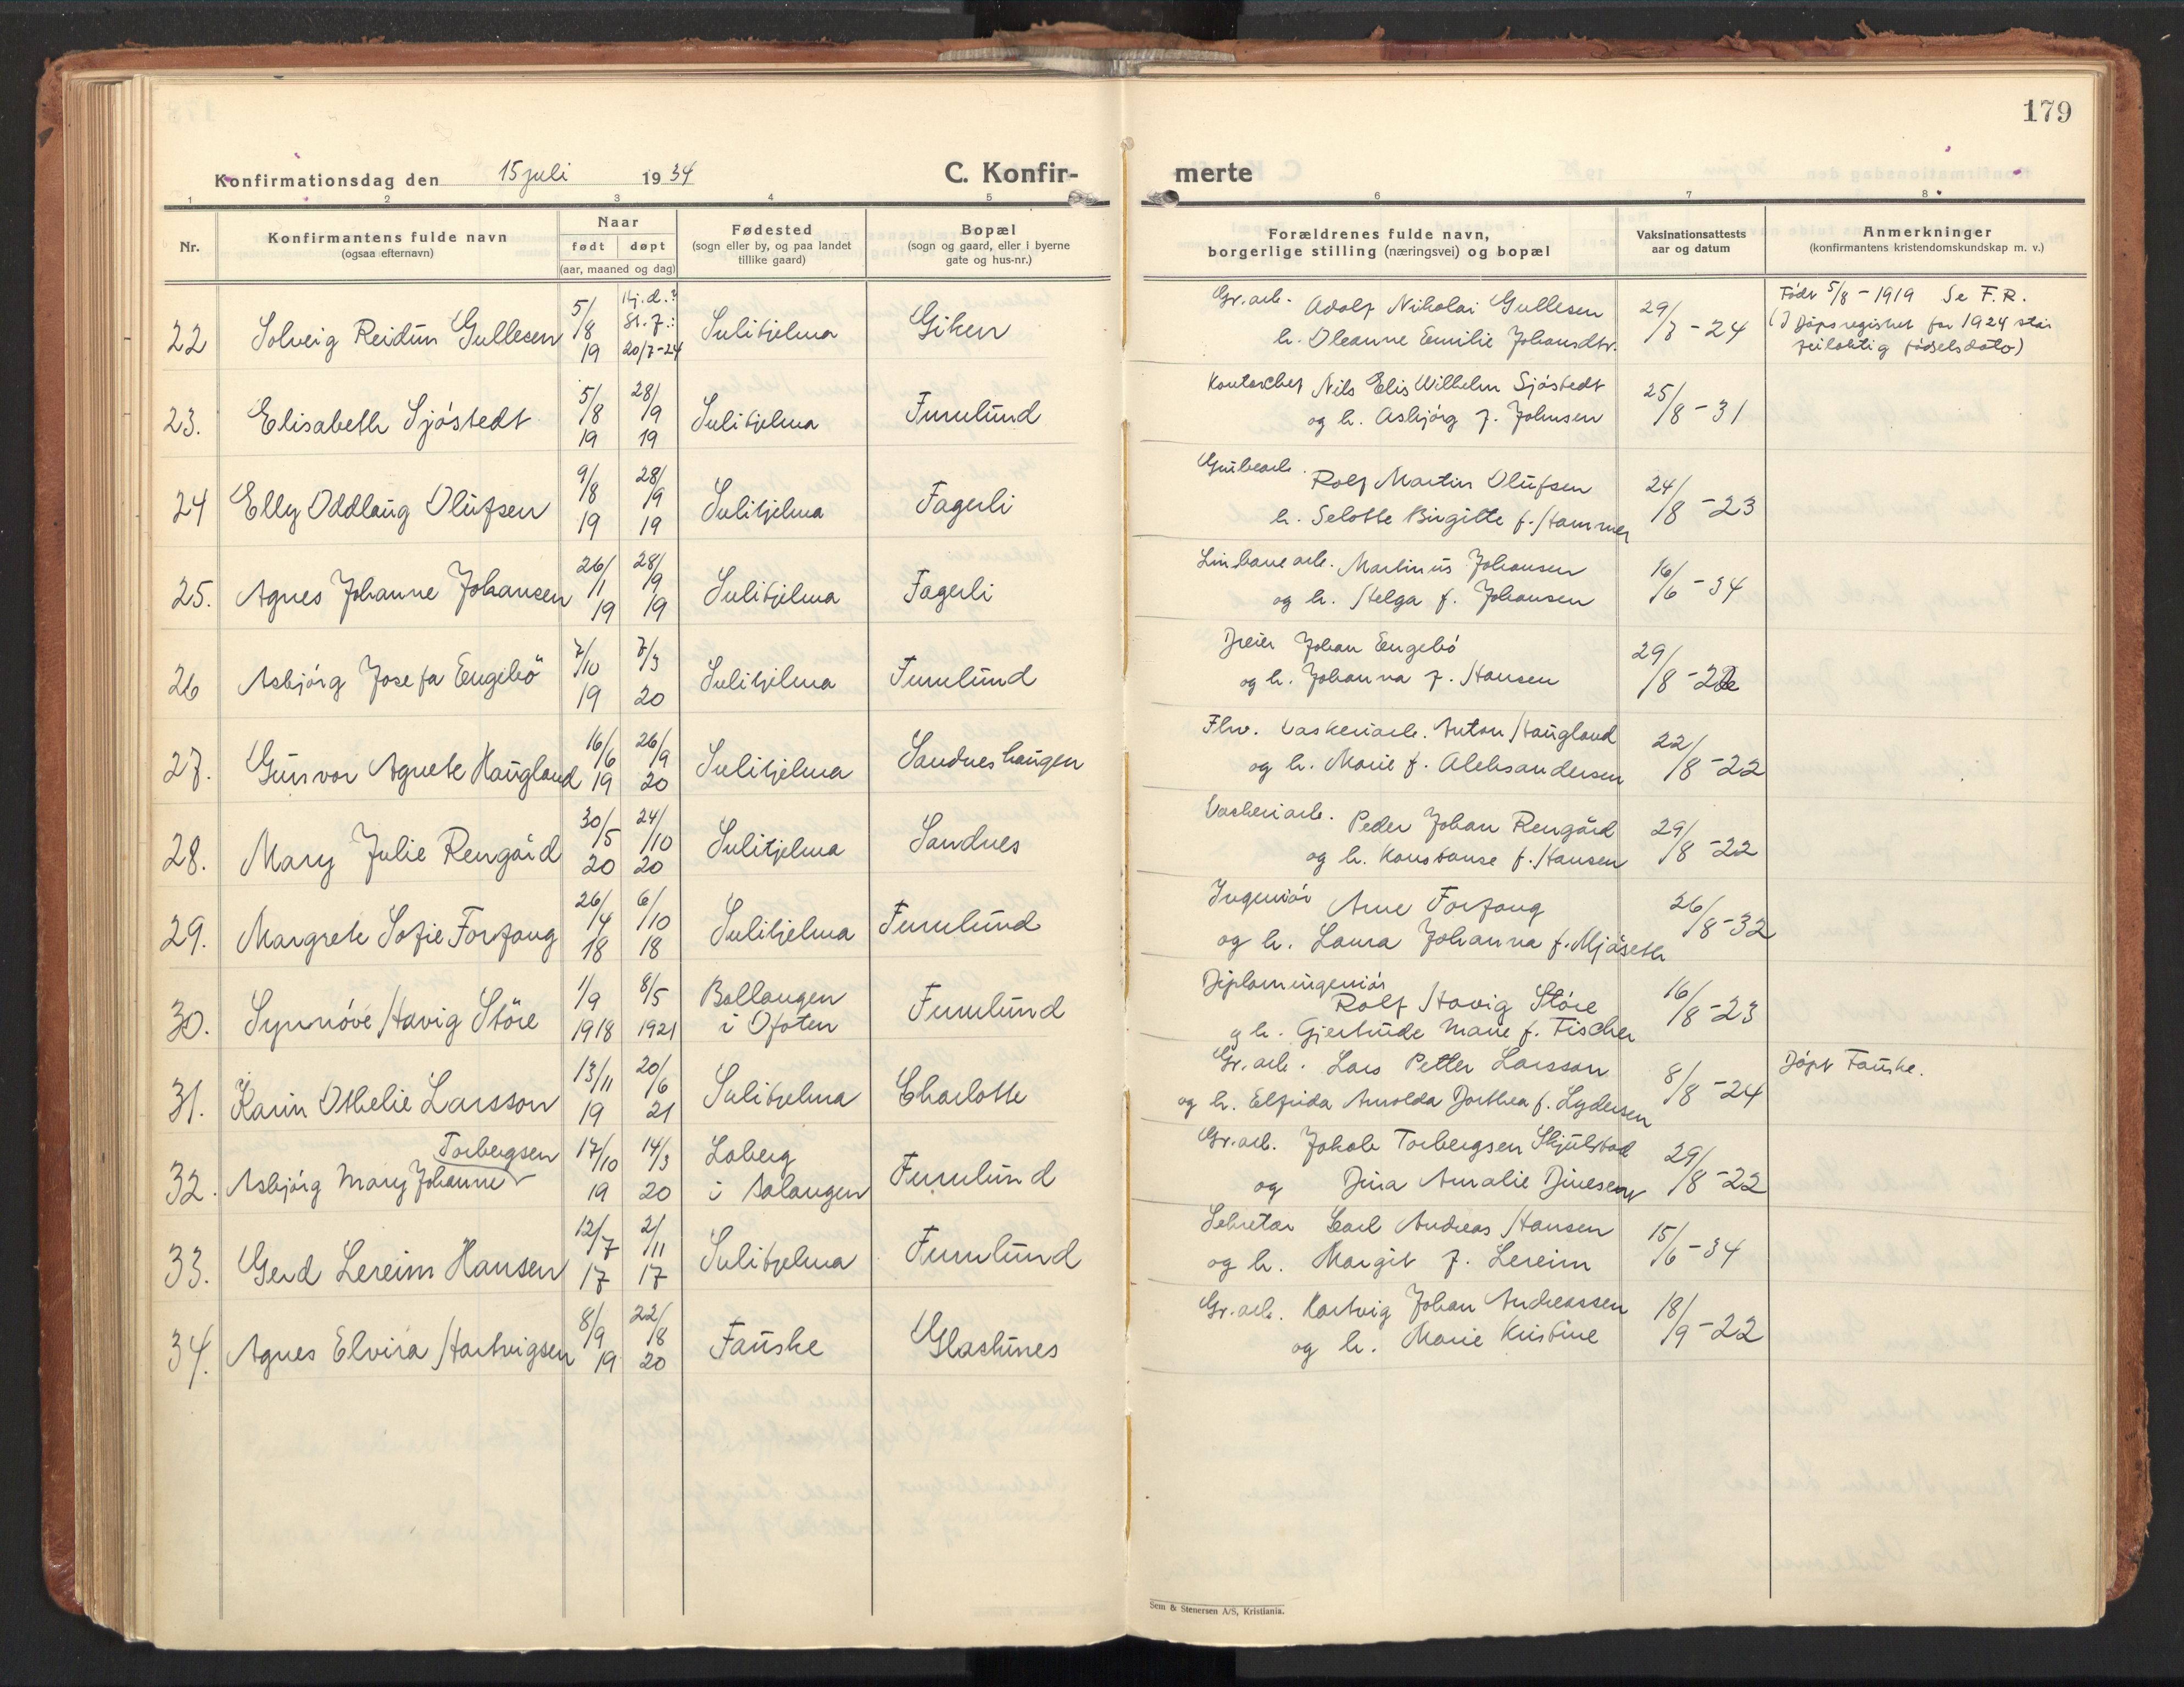 179
Konfirmationsdag den 15 juli 1934
C. Konfir-
merte
1 2 3 4 5 6 7 8
Nr.
Konfirmantens fulde navn
(ogsaa efternavn)
Naar
født døpt
(aar, maaned og dag)
Fødested
(sogn eller by, og paa landet
tillike gaard)
Bopæl
(sogn og gaard, eller i byerne
gate og hus-nr.)
Forældrenes fulde navn,
borgerlige stilling (næringsvei) og bopæl
Vaksinationsattests
aar og datum
Anmerkninger
(konfirmantens kristendomskundskap m. v.)
22 Solveig Reidun Gullesen 5/8 19 Hj.d.? St. f.: 20/7-24 Sulitjelma Giken
Gr.arb. Adolf Nikolai Gullesen
h. Oleanne Emilie Johansdtr. 29/7-24
Född 5/8-1919 Se F.R.
(I döpsregistret for 1924 står
feilaktig födselsdato)
23. Elisabeth Sjöstedt 5/8 19 28/9 19 Sulitjelma Furulund
Kontorchef Nils Elis Wilhelm Sjöstedt
og h. Asbjörg f. Johnsen 25/8-31
24 Elly Oddlaug Olufsen 9/8 19 28/9 19 Sulitjelma Fagerli
Grubearb. Rolf Martin Olufsen
h. Selotte Birgitte f. Hammer 24/8-23
25. Agnes Johanne Johansen 26/1 19 28/9 19 Sulitjelma Fagerli
Linbanearb. Martinus Johansen
og h. Helga f. Johansen 16/6-34
26 Asbjörg Josefa Engebö 7/10 19 7/3 20 Sulitjelma Furulund
Dreier Johan Engebö
og h. Johanna f. Hansen 29/8-22
27. Gunvor Agnete Haugland 16/6 19 26/9 20 Sulitjelma Sandneshaugen
Flv. Vaskeriarb. Anton Haugland
og h. Marie f. Aleksandersen 22/8-22
28. Mary Julie Rengård 30/5 20 24/10 20 Sulitjelma Sandnes
Vaskeriarb. Peder Johan Rengård
og h. Konstanse f. Hansen 29/8-22
29. Margrete Sofie Forfang 26/4 18 6/10 18 Sulitjelma Furulund
Ingeniör Arne Forfang
og h. Laura Johanna f. Mjöseth 26/8-32
30. Synnöve Havig Störe 1/9 1918 8/5 1921 Ballangen
i Ofoten Furulund
Diplomingeniör
Rolf Havig Störe
og h. Gjertrude Marie f. Fischer 16/8-23
31. Karin Othelie Larsson 13/11 19 20/6 21 Sulitjelma Charlotte
Gr.arb. Lars Petter Larsson
og h. Elfrida Arnolda Dorthea f. Lydersen 8/8-24
Döpt Fauske.
32. Asbjörg Mary Johanne Torbergsen 17/10 19 14/3 20 Loberg
i Salangen Furulund
Gr.arb. Jakob Torbergsen Skjulstad
og Dina Amalie Dinesen 29/8-22
33. Gerd Lereim Hansen 12/7 17 2/11 17 Sulitjelma Furulund
Sekretær Carl Andreas Hansen
og h. Margit f. Lereim 15/6-34
34. Agnes Elvira Hartvigsen 8/9 19 22/8 20 Fauske Glastunes
Gr.arb. Hartvig Johan Andreassen
og h. Marie Kristine 18/9-22
Sem & Stenersen A/S, Kristiania.